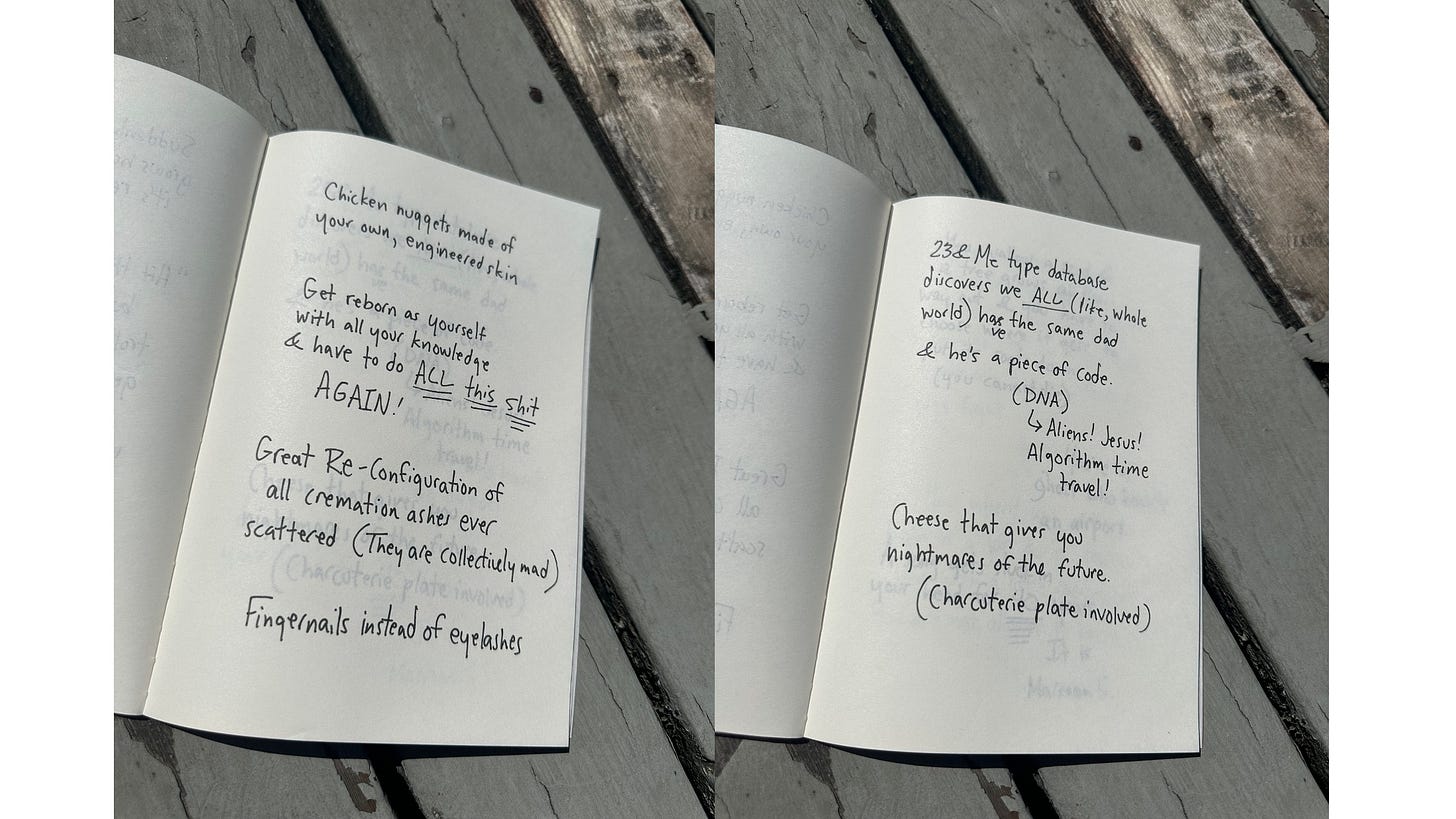 Chicken nuggets made of
your own, engineered skin
Get reborn as yourself
with all your knowledge
& have to do ALL this shit
AGAIN!
Great Re-Configuration of
all cremation ashes ever
scattered (They are collectively mad)
Fingernails instead of eyelashes
23 & Me type database
discovers we ALL (like, whole
world) has the same dad
've
& he's a piece of code.
(DNA)
↳ Aliens! Jesus!
Algorithm time
travel!
Cheese that gives you
nightmares of the future.
(Charcuterie plate involved)